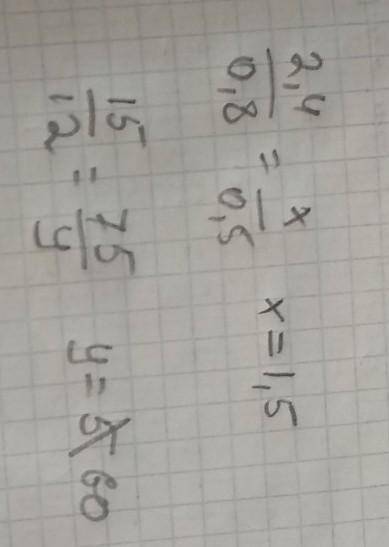 2,4/0,8 = x/0,5 x = 1,5
15/12 = 75/y y = 60